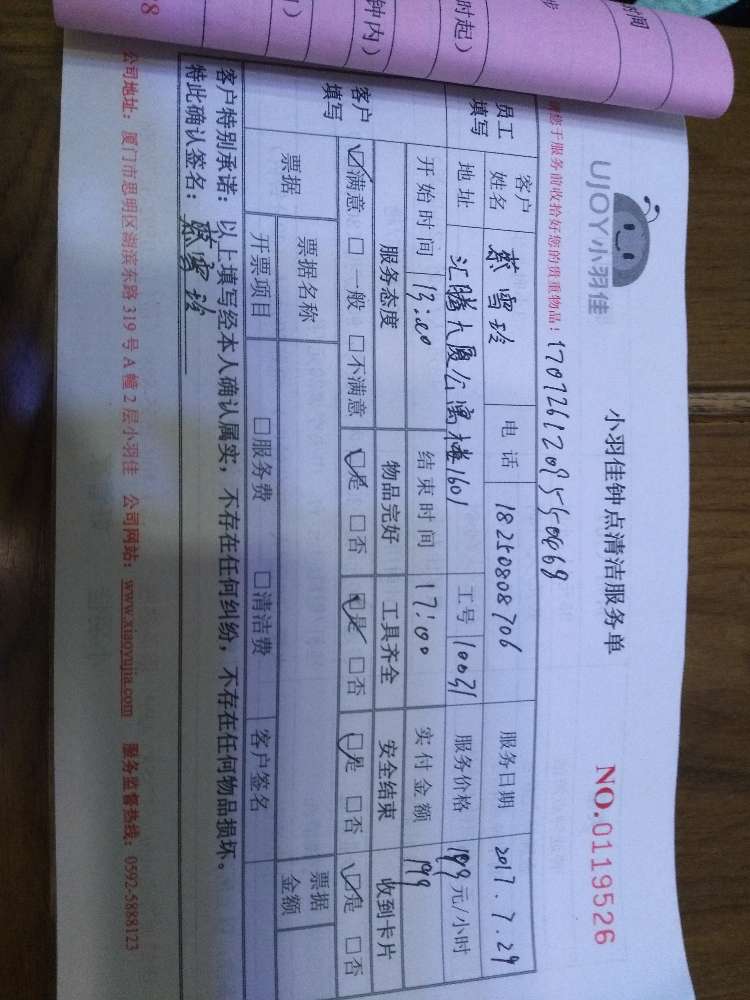 时间
步
时起）
钟内）
1）
78
UJOY小羽佳
小羽佳钟点清洁服务单
NO.0119526
请您于服务前收拾好您的贵重物品！
员工填写 客户姓名 蔡雪玲 电话 18250808706 服务日期 2017.7.29
地址 汇腾大厦公寓楼1601 工号 10031 服务价格 199 元/小时
开始时间 13:00 结束时间 17:00 实付金额 199
客户填写 服务态度 物品完好 工具齐全 安全结束 收到卡片
☑满意 □一般 □不满意 ☑是 □否 ☑是 □否 ☑是 □否 ☑是 □否
票据 票据名称 票据金额
开票项目 □服务费 □清洁费 客户签名
客户特别承诺：以上填写经本人确认属实，不存在任何纠纷，不存在任何物品损坏。
特此确认签名：蔡雪玲
公司地址：厦门市思明区湖滨东路 319 号 A 幢 2 层小羽佳 公司网站：www.xiaoyujia.com 服务监督热线：0592-5888123